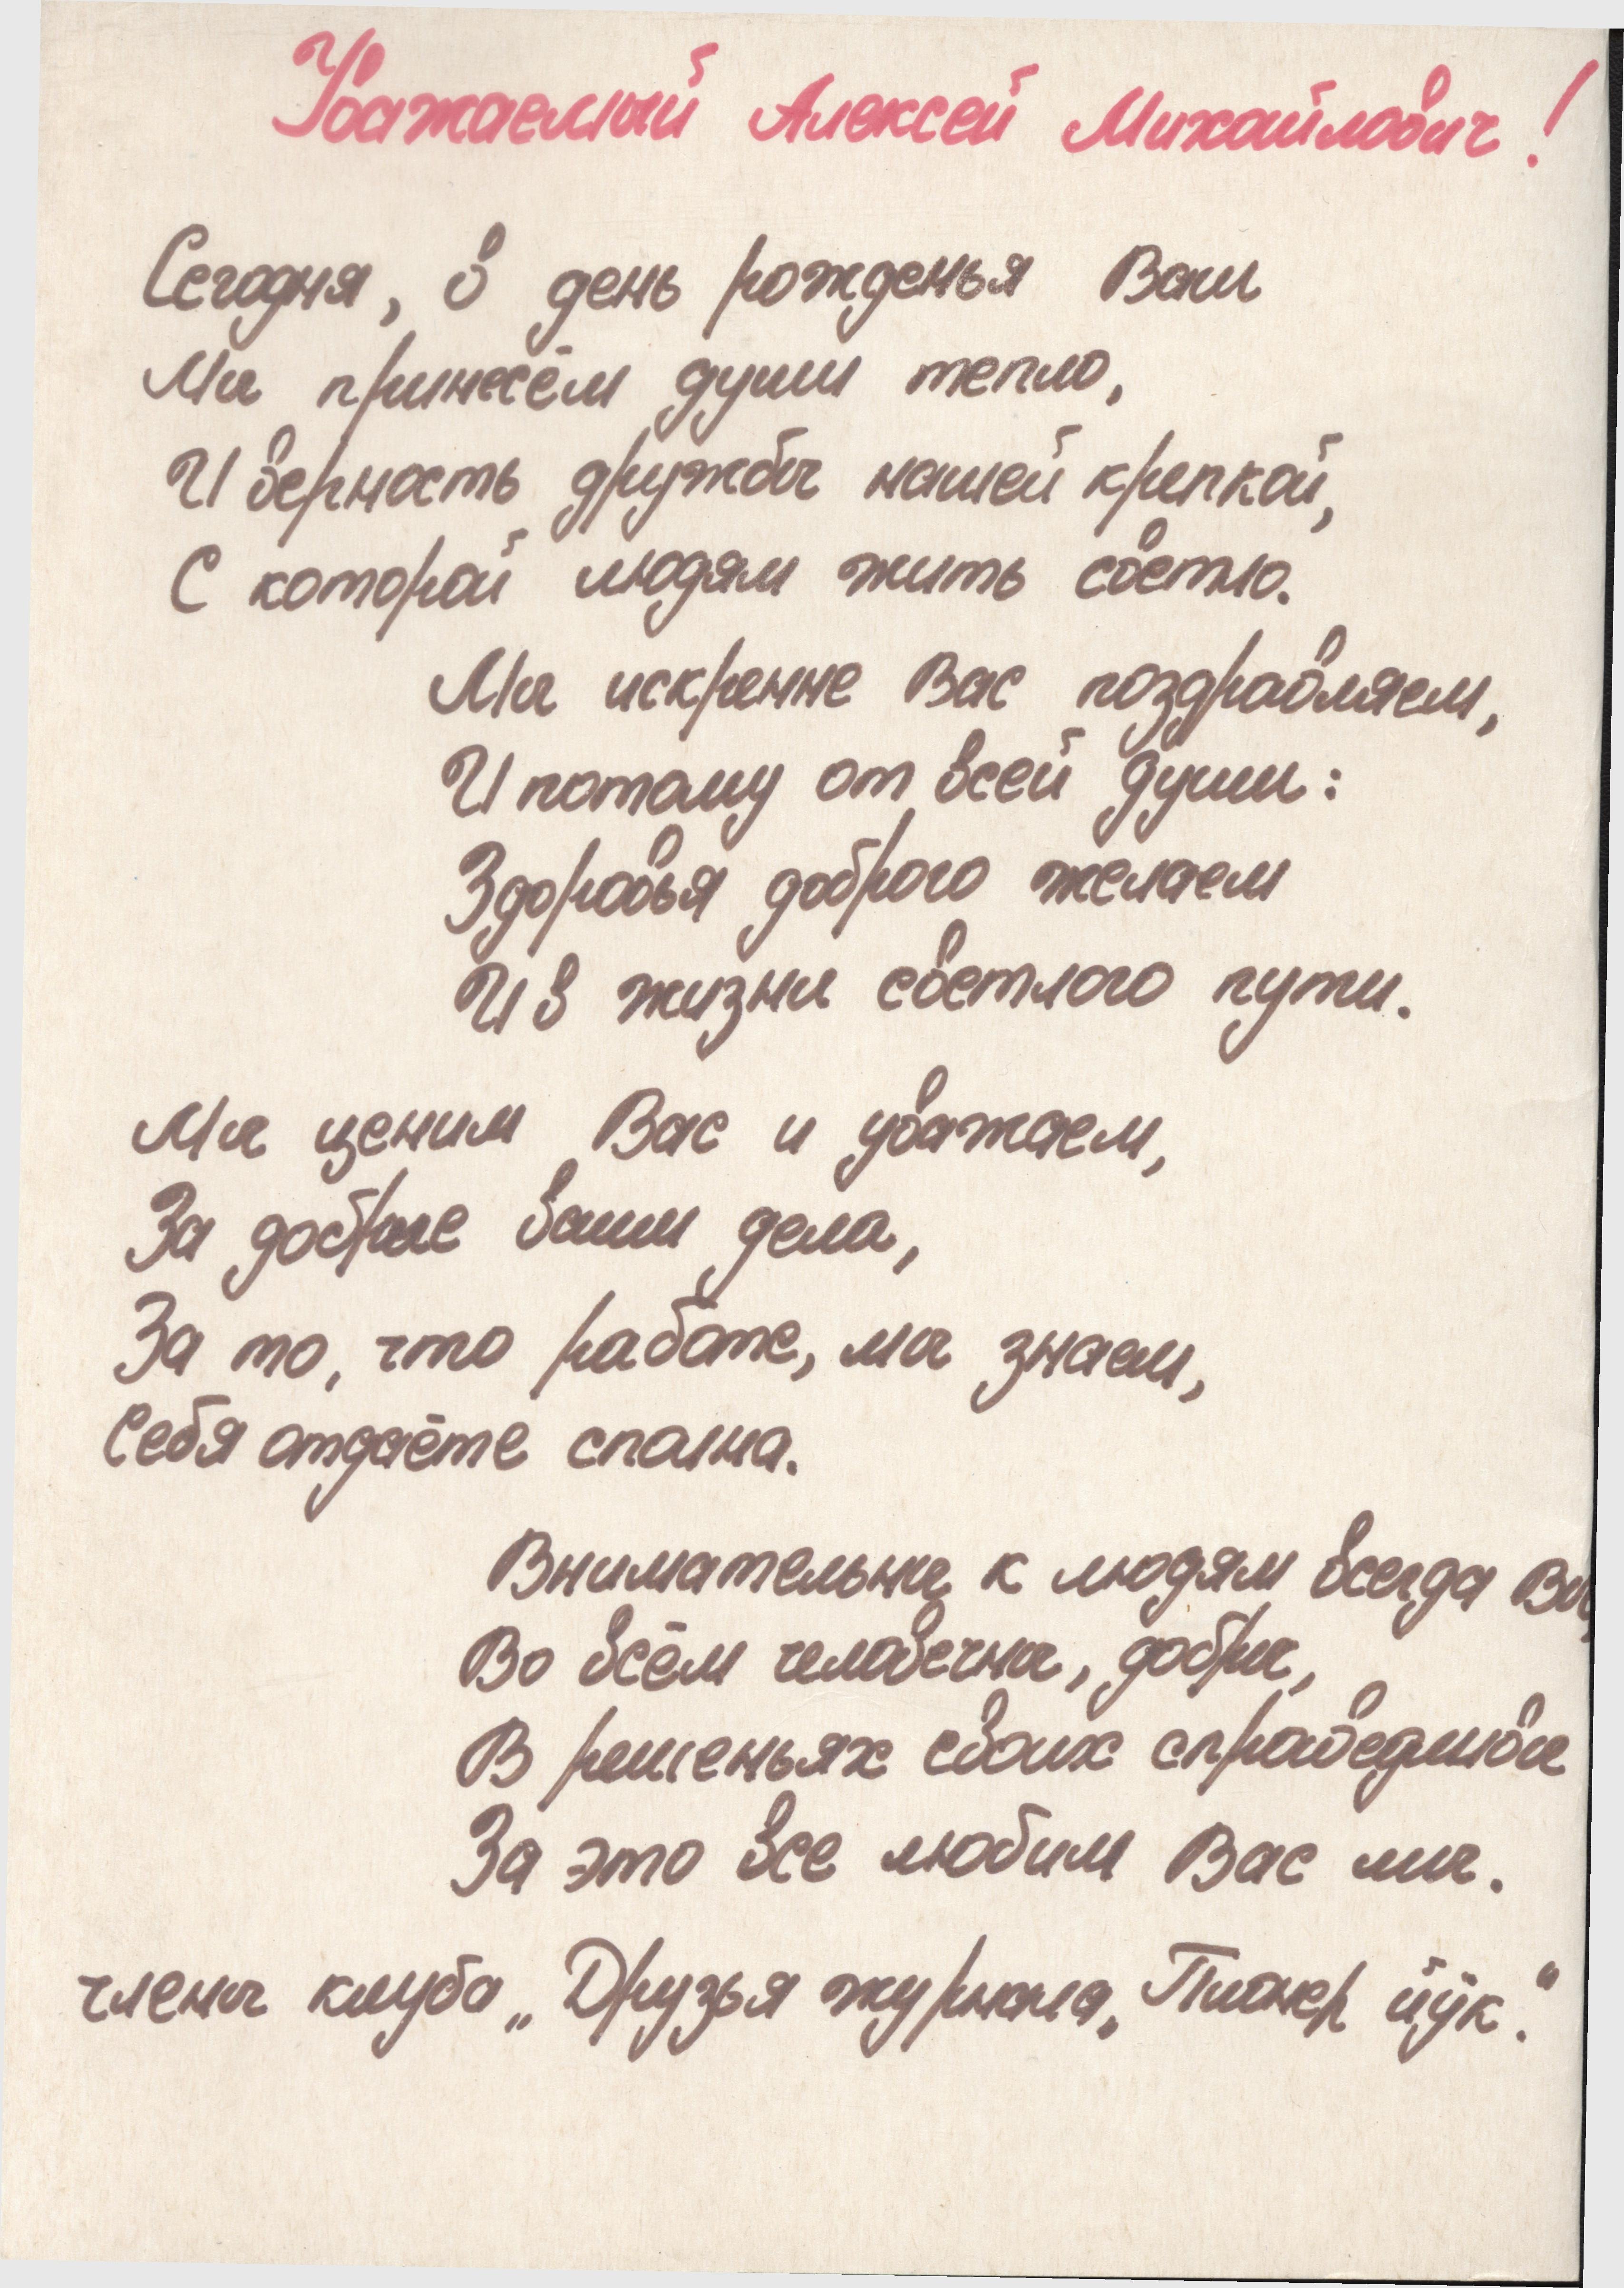 Уважаемый Алексей Михайлович!
Сегодня, в день рожденья Ваш
Мы принесём души тепло,
И верность дружбы нашей крепкой,
С которой людям жить светло.
Мы искренне Вас поздравляем,
И потому от всей души:
Здоровья доброго желаем
И в жизни светлого пути.
Мы ценим Вас и уважаем,
За добрые ваши дела,
За то, что работе, мы знаем,
Себя отдаёте сполна.
Внимательны к людям всегда Вы,
Во всём человечны, добры,
В решеньях своих справедливы
За это все любим Вас мы.
члены клуба „Друзья журнала „Пионер йӱк".